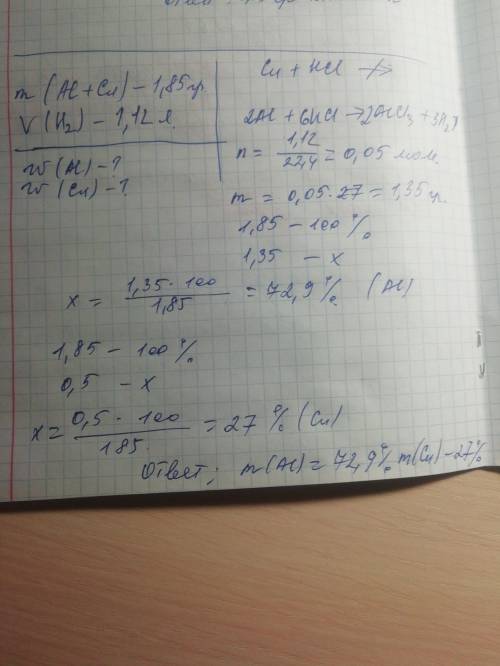 m (Al + Cu) - 1,85 гр.
V (H₂) - 1,12 л.
w (Al) - ?
w (Cu) - ?
Cu + HCl -/->
2Al + 6HCl → 2AlCl₃ + 3H₂↑
n = 1,12 / 22,4 = 0,05 моль.
m = 0,05 · 27 = 1,35 гр.
1,85 - 100 %
1,35 - x
x = 1,35 · 100 / 1,85 = 72,9 % (Al)
1,85 - 100 %
0,5 - x
x = 0,5 · 100 / 185. = 27 % (Cu)
Ответ; m (Al) = 72,9 % m (Cu) - 27 %